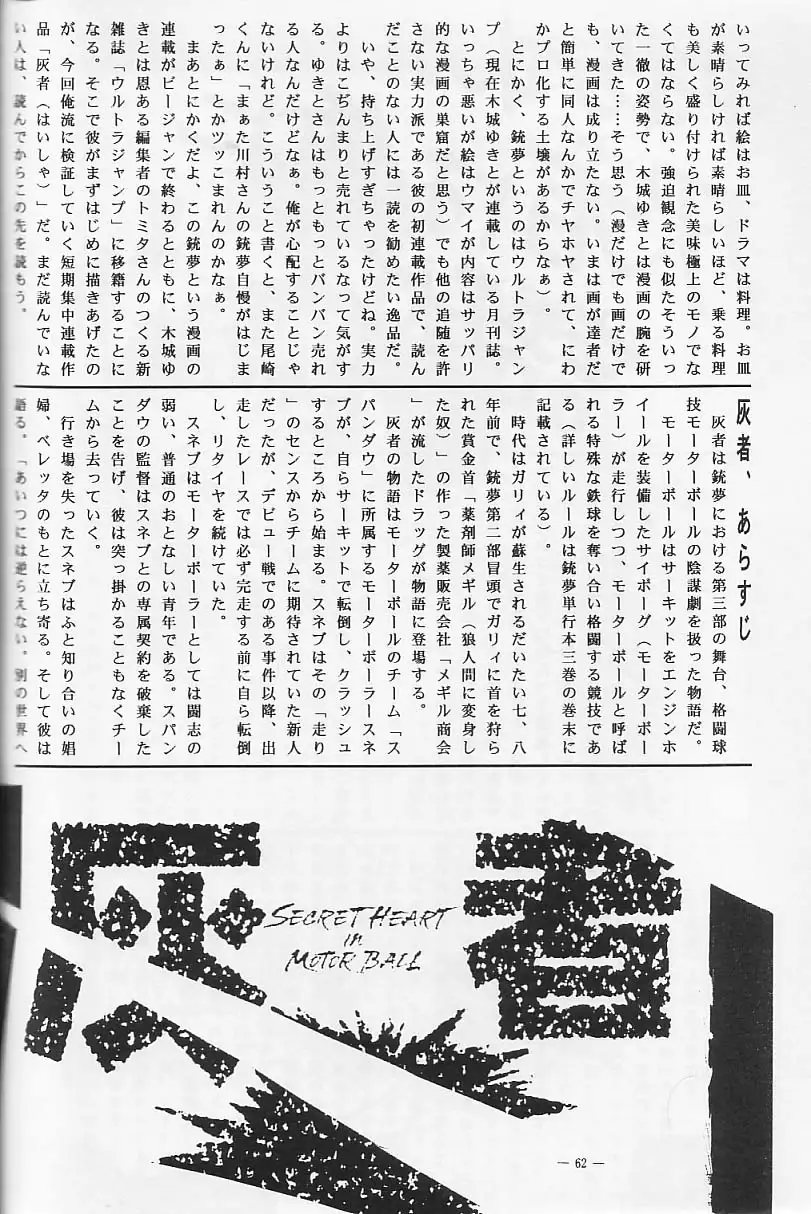 いってみれば絵はお皿、ドラマは料理。お皿
が素晴らしければ素晴らしいほど、乗る料理
も美しく盛り付けられた美味極上のモノでな
くてはならない。強迫観念にも似たそういっ
た一徹の姿勢で、木城ゆきとは漫画の腕を研
いてきた……そう思う（漫だけでも画だけで
も、漫画は成り立たない。いまは画が達者だ
と簡単に同人なんかでチヤホヤされて、にわ
かプロ化する土壌があるからなぁ）。
とにかく、銃夢というのはウルトラジャン
プ（現在木城ゆきとが連載している月刊誌。
いっちゃ悪いが絵はウマイが内容はサッパリ
的な漫画の巣窟だと思う）でも他の追随を許
さない実力派である彼の初連載作品で、読ん
だことのない人には一読を勧めたい逸品だ。
いや、持ち上げすぎちゃったけどね。実力
よりはこぢんまりと売れているなって気がす
る。ゆきとさんはもっともっとバンバン売れ
る人なんだけどなぁ。俺が心配することじゃ
ないけれど。こういうこと書くと、また尾崎
くんに「まぁた川村さんの銃夢自慢がはじま
ったぁ」とかツッこまれんのかなぁ。
まあとにかくだよ、この銃夢という漫画の
連載がビージャンで終わるとともに、木城ゆ
きとは恩ある編集者のトミタさんのつくる新
雑誌「ウルトラジャンプ」に移籍することに
なる。そこで彼がまずはじめに描きあげたの
が、今回俺流に検証していく短期集中連載作
品「灰者（はいしゃ）」だ。まだ読んでいな
い人は、読んでからこの先を読もう。
灰者、あらすじ
灰者は銃夢における第三部の舞台、格闘球
技モーターボールの陰謀劇を扱った物語だ。
モーターボールはサーキットをエンジンホ
イールを装備したサイボーグ（モーターボー
ラー）が走行しつつ、モーターボールと呼ば
れる特殊な鉄球を奪い合い格闘する競技であ
る（詳しいルールは銃夢単行本三巻の巻末に
記載されている）。
時代はガリィが蘇生されるだいたい七、八
年前で、銃夢第二部冒頭でガリィに首を狩ら
れた賞金首「薬剤師メギル（狼人間に変身し
た奴）」の作った製薬販売会社「メギル商会
」が流したドラッグが物語に登場する。
灰者の物語はモーターボールのチーム「ス
パンダウ」に所属するモーターボーラースネ
ブが、自らサーキットで転倒し、クラッシュ
するところから始まる。スネブはその「走り
」のセンスからチームに期待されていた新人
だったが、デビュー戦でのある事件以降、出
走したレースでは必ず完走する前に自ら転倒
し、リタイヤを続けていた。
スネブはモーターボーラーとしては闘志の
弱い、普通のおとなしい青年である。スパン
ダウの監督はスネブとの専属契約を破棄した
ことを告げ、彼は突っ掛かることもなくチー
ムから去っていく。
行き場を失ったスネブはふと知り合いの娼
婦、ベレッタのもとに立ち寄る。そして彼は
語る。「あいつには逆らえない。別の世界へ
灰者
SECRET HEART
in
MOTOR BALL
— 62 —